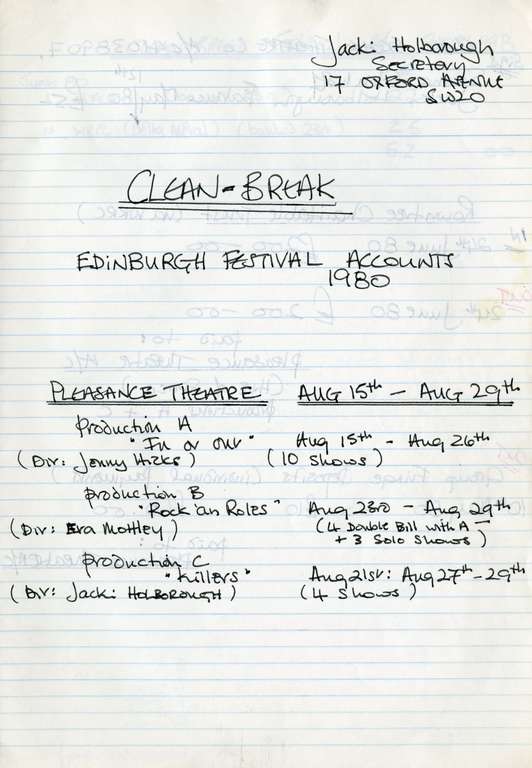 Jacki Holborough
Secretary
17 OXFORD AVENUE
SW20
CLEAN-BREAK
EDINBURGH FESTIVAL ACCOUNTS
1980
PLEASANCE THEATRE AUG 15th - AUG 29th
production A
"In or Out" Aug 15th - Aug 26th
(Dir: Jenny Hicks) (10 Shows)
production B
"Rock 'an Roles" Aug 23rd - Aug 29th
(Dir: Eva Mottley) (4 Double Bill with A -
+ 3 Solo Shows)
production C
"Killers" Aug 21st: Aug 27th - 29th
(Dir: Jacki HOLBOROUGH) (4 Shows)